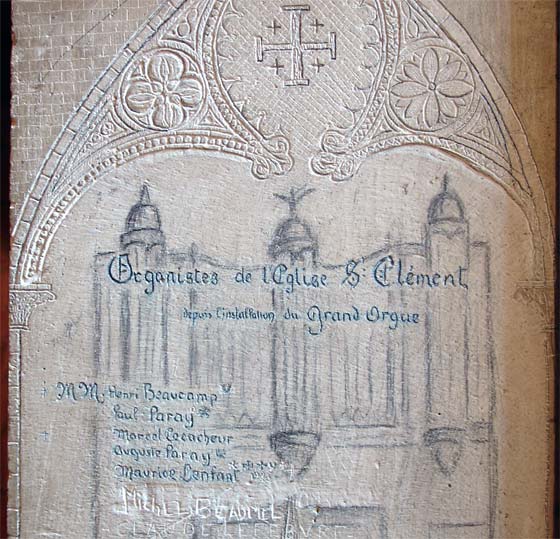 Organistes de l'Eglise St Clément
depuis l'installation du Grand Orgue
+ M M. Henri Beaucamp
Paul Paray
+ Marcel Lecacheur
Auguste Paray
Maurice Lenfant
CLAUDE LEFEBVRE